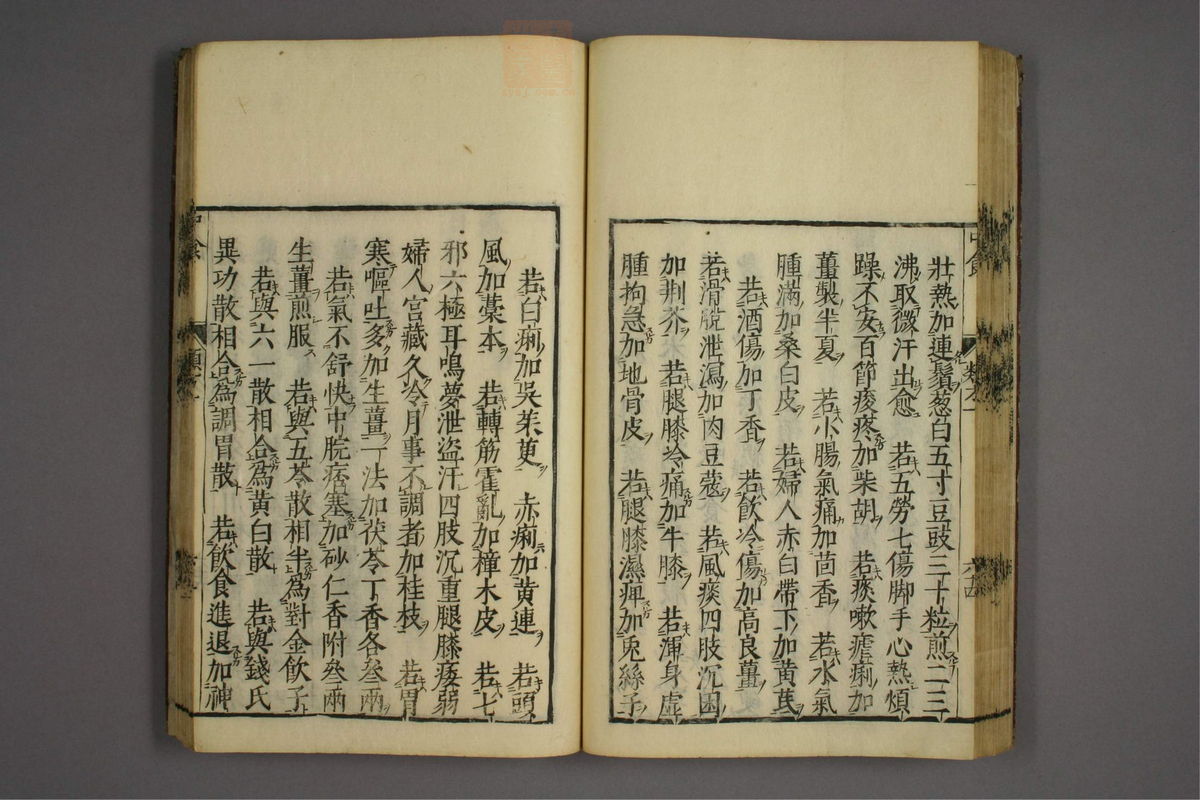 壯熱加連鬚葱白五寸豆豉三十粒煎二三
沸取微汗出愈　若五勞七傷脚手心熱煩
躁不安百節痠疼加柴胡　若痰嗽瘧痢加
薑製半夏　若小腸氣痛加茴香　若水氣
腫滿加桑白皮　若婦人赤白帶下加黄芪
若酒傷加丁香　若飲冷傷加高良薑
若滑脱泄瀉加肉豆蔻　若風痰四肢沉困
加荆芥　若腿膝冷痛加牛膝　若渾身虛
腫拘急加地骨皮　若腿膝濕痺加兎絲子
若白痢加吳茱萸　赤痢加黄連　若頭
風加藁本　若轉筋霍亂加樟木皮　若七
邪六極耳鳴夢泄盜汗四肢沉重腿膝痿弱
婦人宮藏久冷月事不調者加桂枝　若胃
寒嘔吐多加生薑一法加茯苓丁香各叁兩
若氣不舒快中脘痞塞加砂仁香附叁兩
生薑煎服　若與五苓散相半爲對金飲子
若與六一散相合爲黄白散　若與錢氏
異功散相合爲調胃散　若飲食進退加神